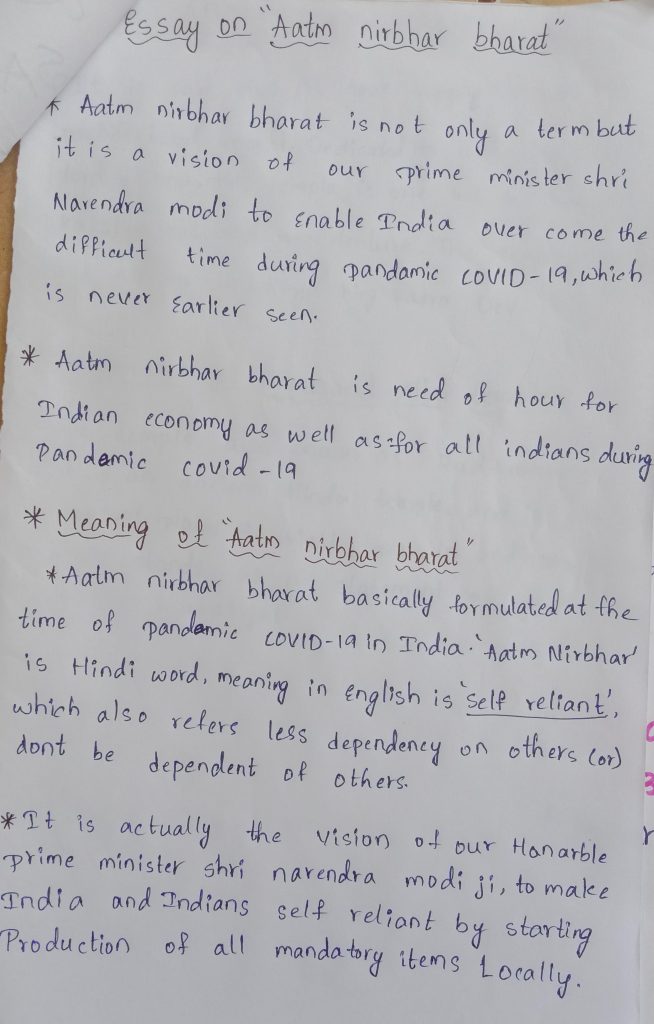 Essay on "Aatm nirbhar bharat"
* Aatm nirbhar bharat is not only a term but
it is a vision of our prime minister shri
Narendra modi to enable India over come the
difficult time during pandamic COVID-19, which
is never earlier seen.
* Aatm nirbhar bharat is need of hour for
Indian economy as well as for all indians during
Pandemic covid -19
* Meaning of "Aatm nirbhar bharat"
* Aatm nirbhar bharat basically formulated at the
time of pandemic COVID-19 in India. 'Aatm Nirbhar'
is Hindi word, meaning in english is 'self reliant',
which also refers less dependency on others (or)
dont be dependent of others.
* It is actually the vision of our Honarble
prime minister shri narendra modi ji, to make
India and Indians self reliant by starting
Production of all mandatory items Locally.